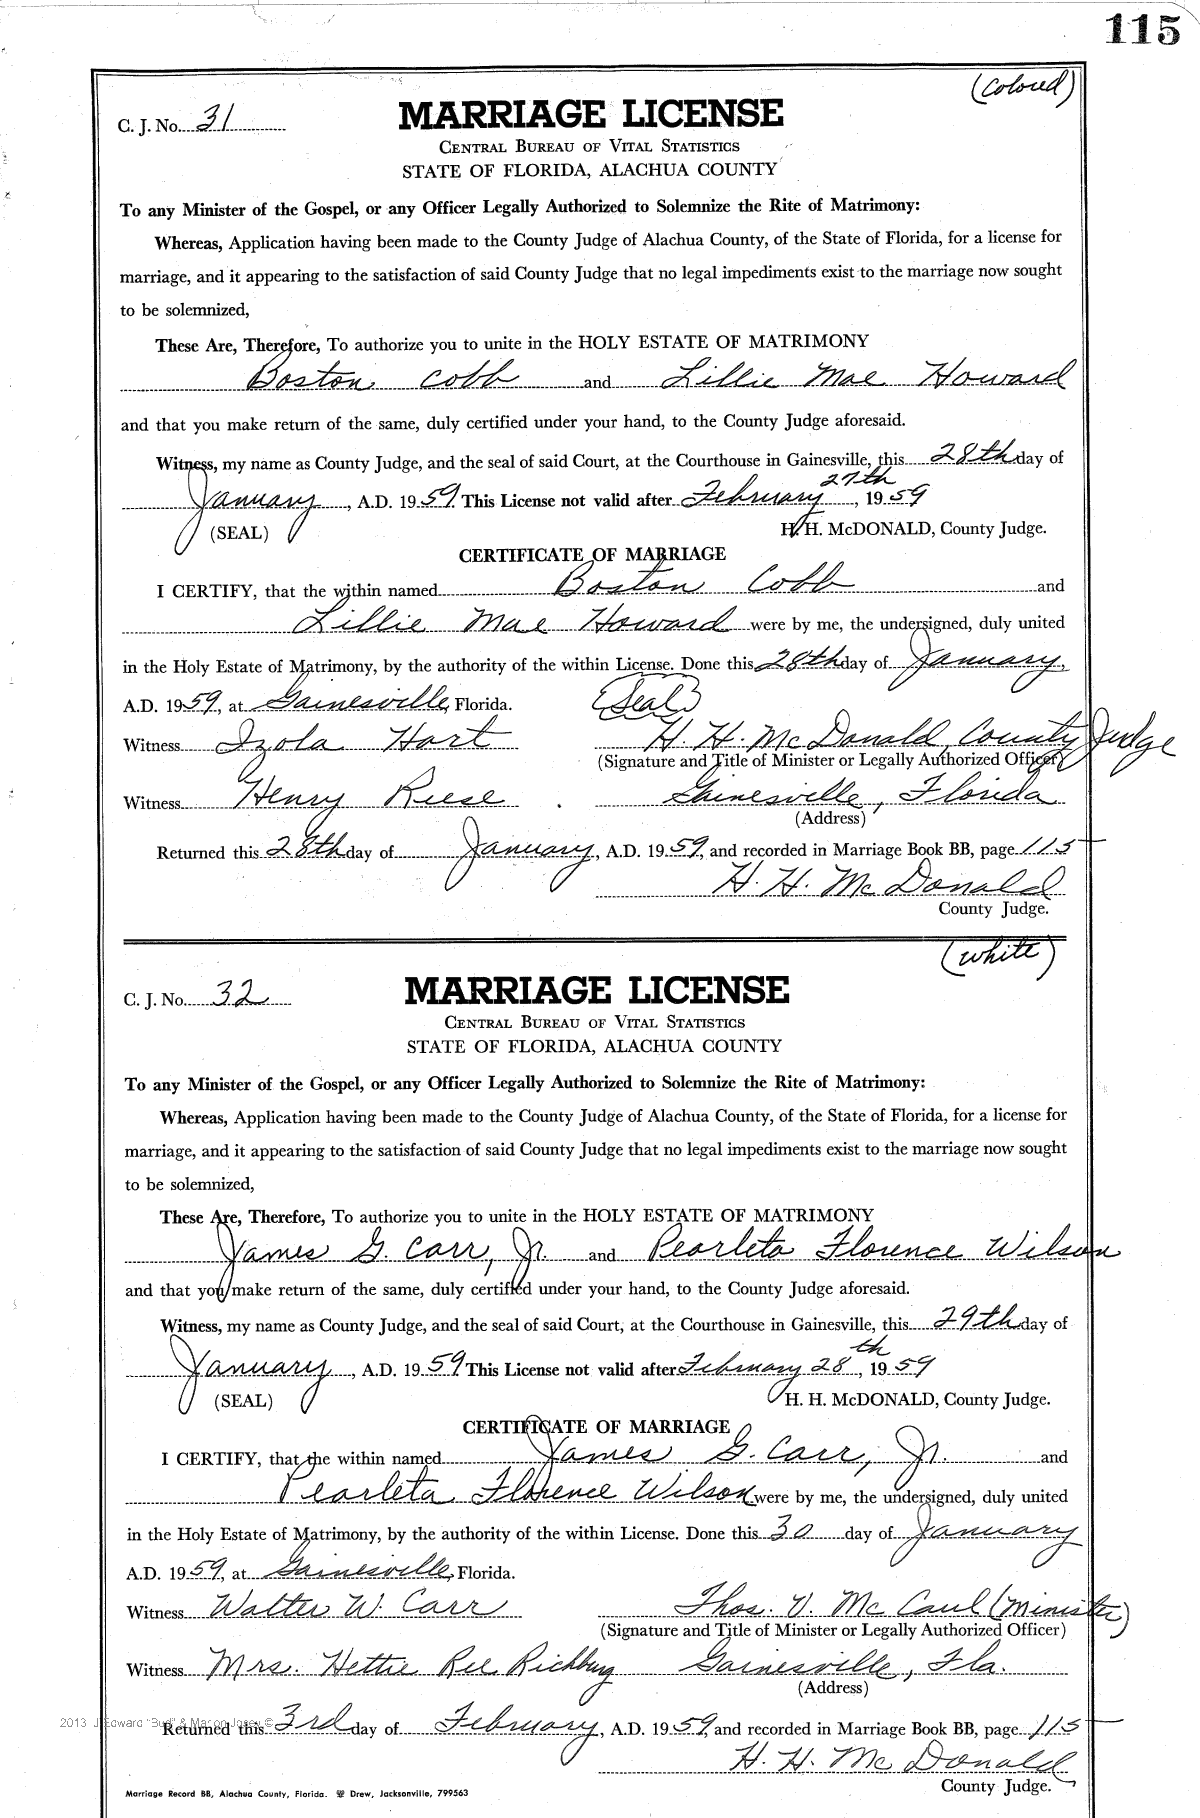 115
(Colored)
C. J. No. 31
MARRIAGE LICENSE
CENTRAL BUREAU OF VITAL STATISTICS
STATE OF FLORIDA, ALACHUA COUNTY
To any Minister of the Gospel, or any Officer Legally Authorized to Solemnize the Rite of Matrimony:
Whereas, Application having been made to the County Judge of Alachua County, of the State of Florida, for a license for
marriage, and it appearing to the satisfaction of said County Judge that no legal impediments exist to the marriage now sought
to be solemnized,
These Are, Therefore, To authorize you to unite in the HOLY ESTATE OF MATRIMONY
Boston Cobb and Lillie Mae Howard
and that you make return of the same, duly certified under your hand, to the County Judge aforesaid.
Witness, my name as County Judge, and the seal of said Court, at the Courthouse in Gainesville, this 28th day of
January, A.D. 1959. This License not valid after February 27th, 1959
(SEAL) H. H. McDONALD, County Judge.
CERTIFICATE OF MARRIAGE
I CERTIFY, that the within named Boston Cobb and
Lillie Mae Howard were by me, the undersigned, duly united
in the Holy Estate of Matrimony, by the authority of the within License. Done this 28th day of January,
A.D. 1959, at Gainesville, Florida. (Seal)
Witness Izola Hart H. H. McDonald, County Judge
(Signature and Title of Minister or Legally Authorized Officer)
Witness Henry Reese Gainesville, Florida
(Address)
Returned this 28th day of January, A.D. 1959, and recorded in Marriage Book BB, page 115
H. H. McDonald
County Judge.
(white)
C. J. No. 32
MARRIAGE LICENSE
CENTRAL BUREAU OF VITAL STATISTICS
STATE OF FLORIDA, ALACHUA COUNTY
To any Minister of the Gospel, or any Officer Legally Authorized to Solemnize the Rite of Matrimony:
Whereas, Application having been made to the County Judge of Alachua County, of the State of Florida, for a license for
marriage, and it appearing to the satisfaction of said County Judge that no legal impediments exist to the marriage now sought
to be solemnized,
These Are, Therefore, To authorize you to unite in the HOLY ESTATE OF MATRIMONY
James G. Carr, Jr. and Pearleta Florence Wilson
and that you make return of the same, duly certified under your hand, to the County Judge aforesaid.
Witness, my name as County Judge, and the seal of said Court, at the Courthouse in Gainesville, this 29th day of
January, A.D. 1959 This License not valid after February 28th, 1959
(SEAL) H. H. McDONALD, County Judge.
CERTIFICATE OF MARRIAGE
I CERTIFY, that the within named James G. Carr, Jr. and
Pearleta Florence Wilson were by me, the undersigned, duly united
in the Holy Estate of Matrimony, by the authority of the within License. Done this 30 day of January
A.D. 1959, at Gainesville, Florida.
Witness Walter W. Carr Thos. V. McCaul (Minister)
(Signature and Title of Minister or Legally Authorized Officer)
Witness Mrs. Hettie Ree Richburg Gainesville, Fla.
(Address)
2013 J Edward "Bud" &
Returned this 3rd day of February, A.D. 1959, and recorded in Marriage Book BB, page 115
H. H. McDonald
County Judge.
Marriage Record BB, Alachua County, Florida. Drew, Jacksonville, 799563